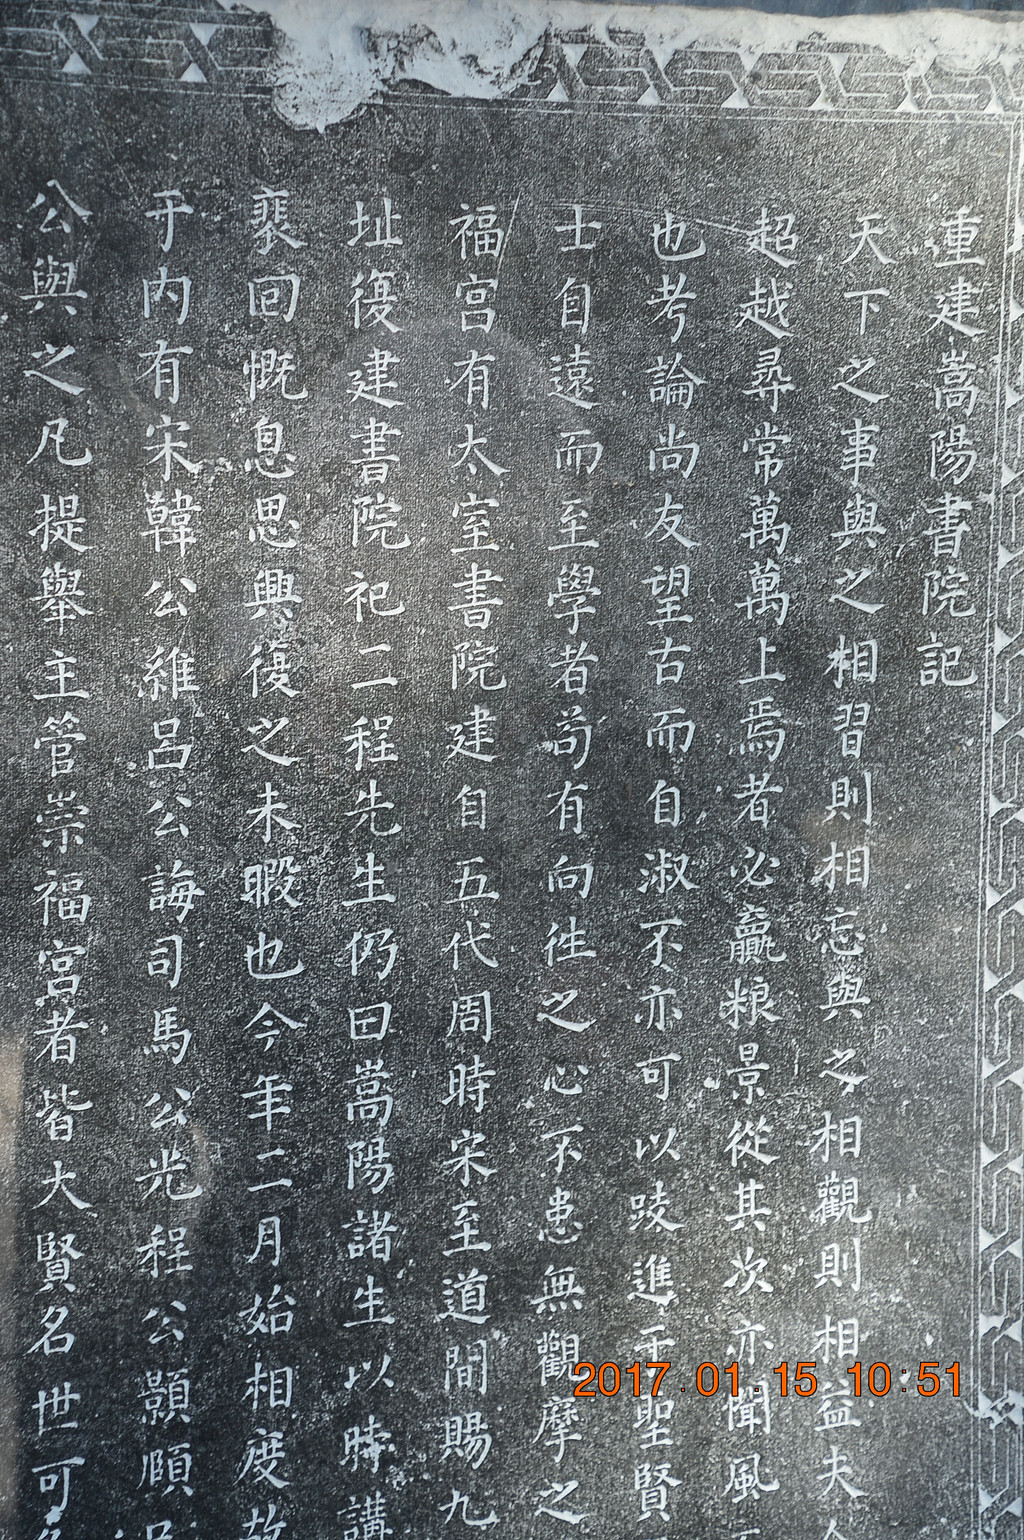 重建嵩陽書院記
天下之事與之相習則相忘與之相觀則相益夫
超越尋常萬萬上焉者必贏粮景從其次亦聞風
也考論尚友望古而自淑不亦可以踐進于聖賢
士自遠而至學者苟有向往之心不患無觀摩之
福宫有太室書院建自五代周時宋至道間賜九
址復建書院祀二程先生仍曰嵩陽諸生以時講
裴回慨息思興復之未暇也今年二月始相度故
于内有宋韓公維呂公誨司馬公光程公顥頤
公與之凡提舉主管崇福宫者皆大賢名世可
2017.01.15 10:51